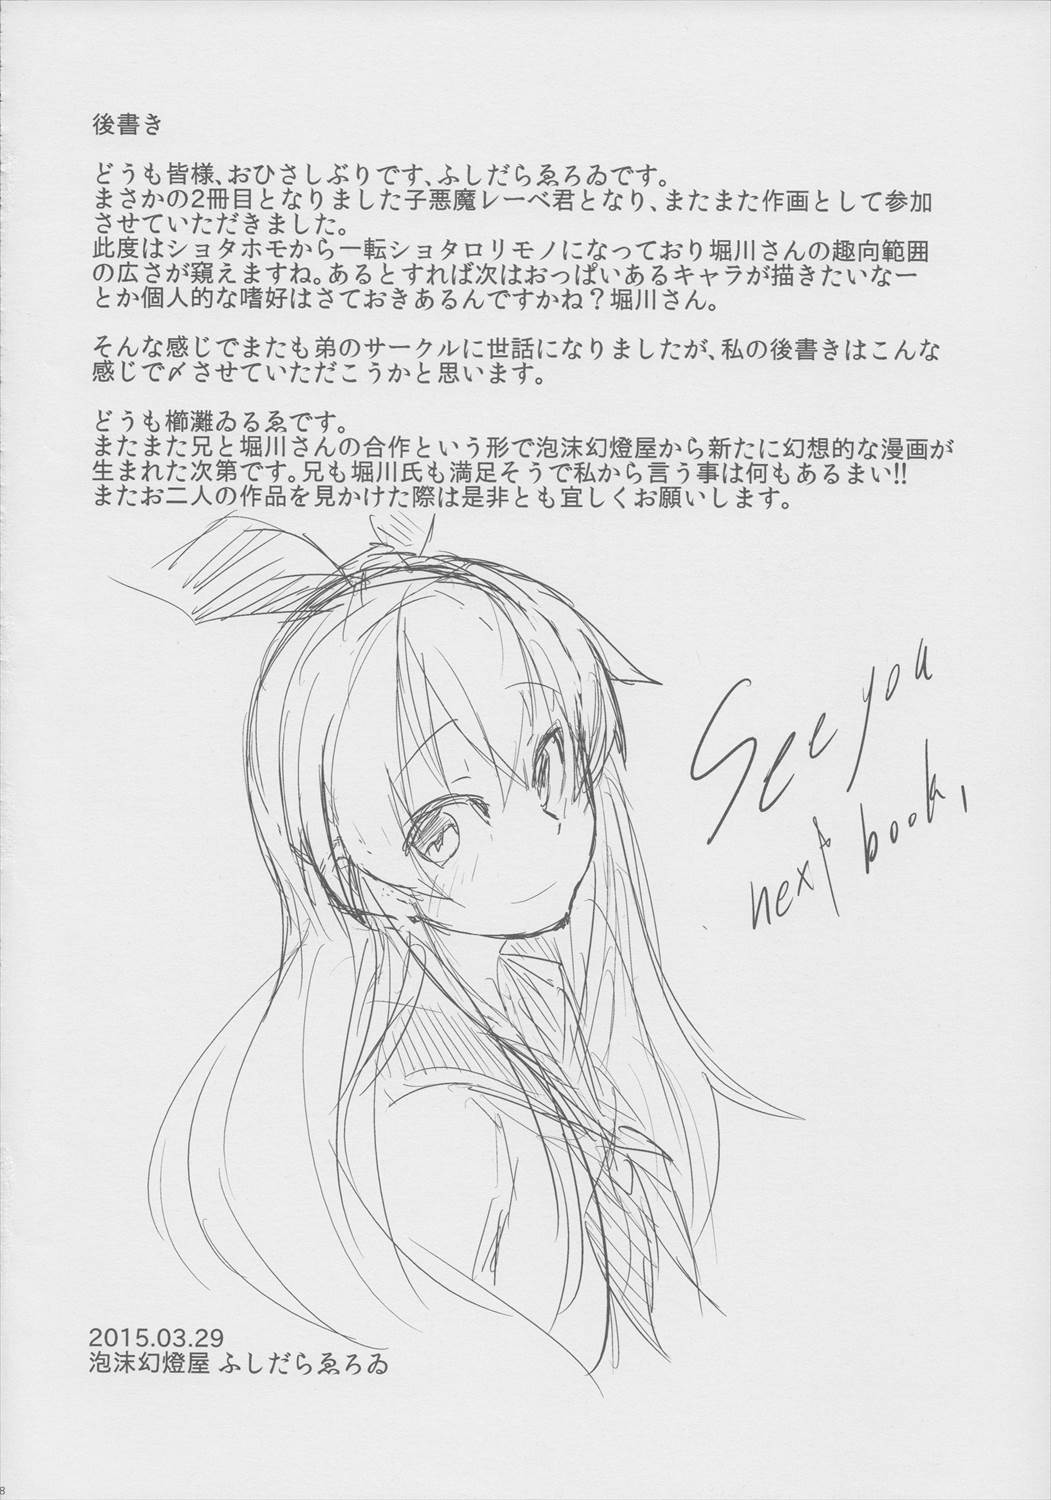 後書き
どうも皆様、おひさしぶりです、ふしだらゑろゐです。
まさかの2冊目となりました子悪魔レーベ君となり、またまた作画として参加
させていただきました。
此度はショタホモから一転ショタロリモノになっており堀川さんの趣向範囲
の広さが窺えますね。あるとすれば次はおっぱいあるキャラが描きたいなー
とか個人的な嗜好はさておきあるんですかね？堀川さん。
そんな感じでまたも弟のサークルに世話になりましたが、私の後書きはこんな
感じで〆させていただこうかと思います。
どうも櫛灘ゐるゑです。
またまた兄と堀川さんの合作という形で泡沫幻燈屋から新たに幻想的な漫画が
生まれた次第です。兄も堀川氏も満足そうで私から言う事は何もあるまい!!
またお二人の作品を見かけた際は是非とも宜しくお願いします。
See you
next book,
2015.03.29
泡沫幻燈屋 ふしだらゑろゐ
8